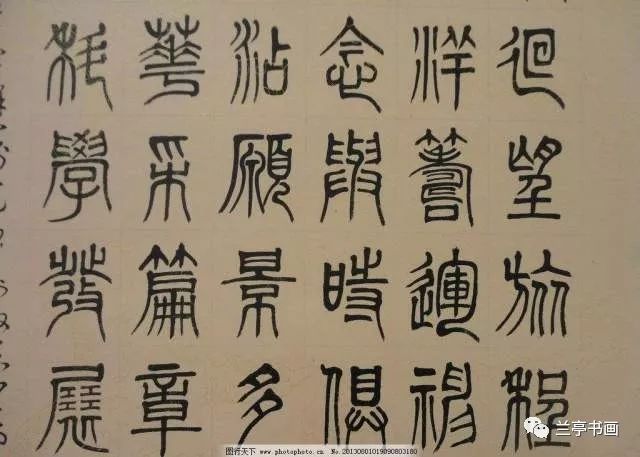 迴望旅程
洋籌運
念與時俱
願景多
華采篇章
科學發展
图行天下 www.photophoto.cn No.20130801019090803180
兰亭书画